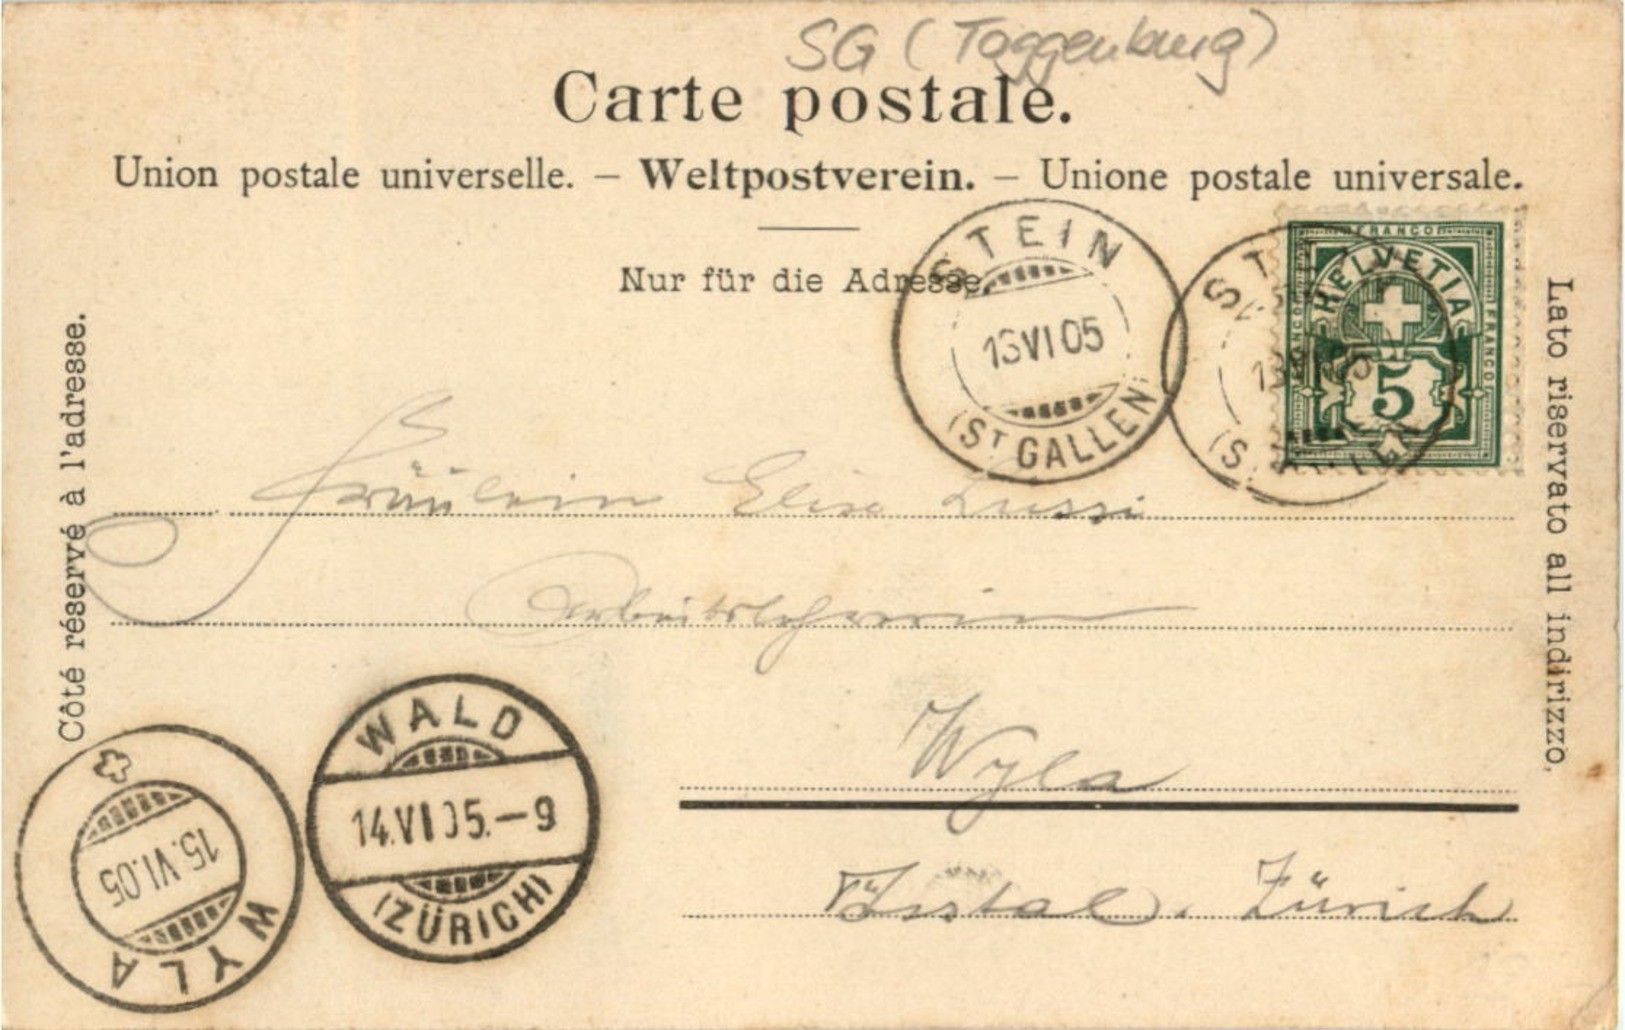 SG (Toggenburg)
Carte postale.
Union postale universelle. – Weltpostverein. – Unione postale universale.
Nur für die Adresse.
STEIN
13 VI 05
(ST GALLEN)
ST
13 VI 05
FRANCO
HELVETIA
FRANCO
FRANCO
5
Côté réservé à l'adresse.
Lato riservato all indirizzo,
Fräulein Elise Lussi
Arbeitslehrerin
Wyla
Tösstal. Zürich
WALD
14.VI 05.–9
(ZÜRICH)
15.VI.05
WYLA